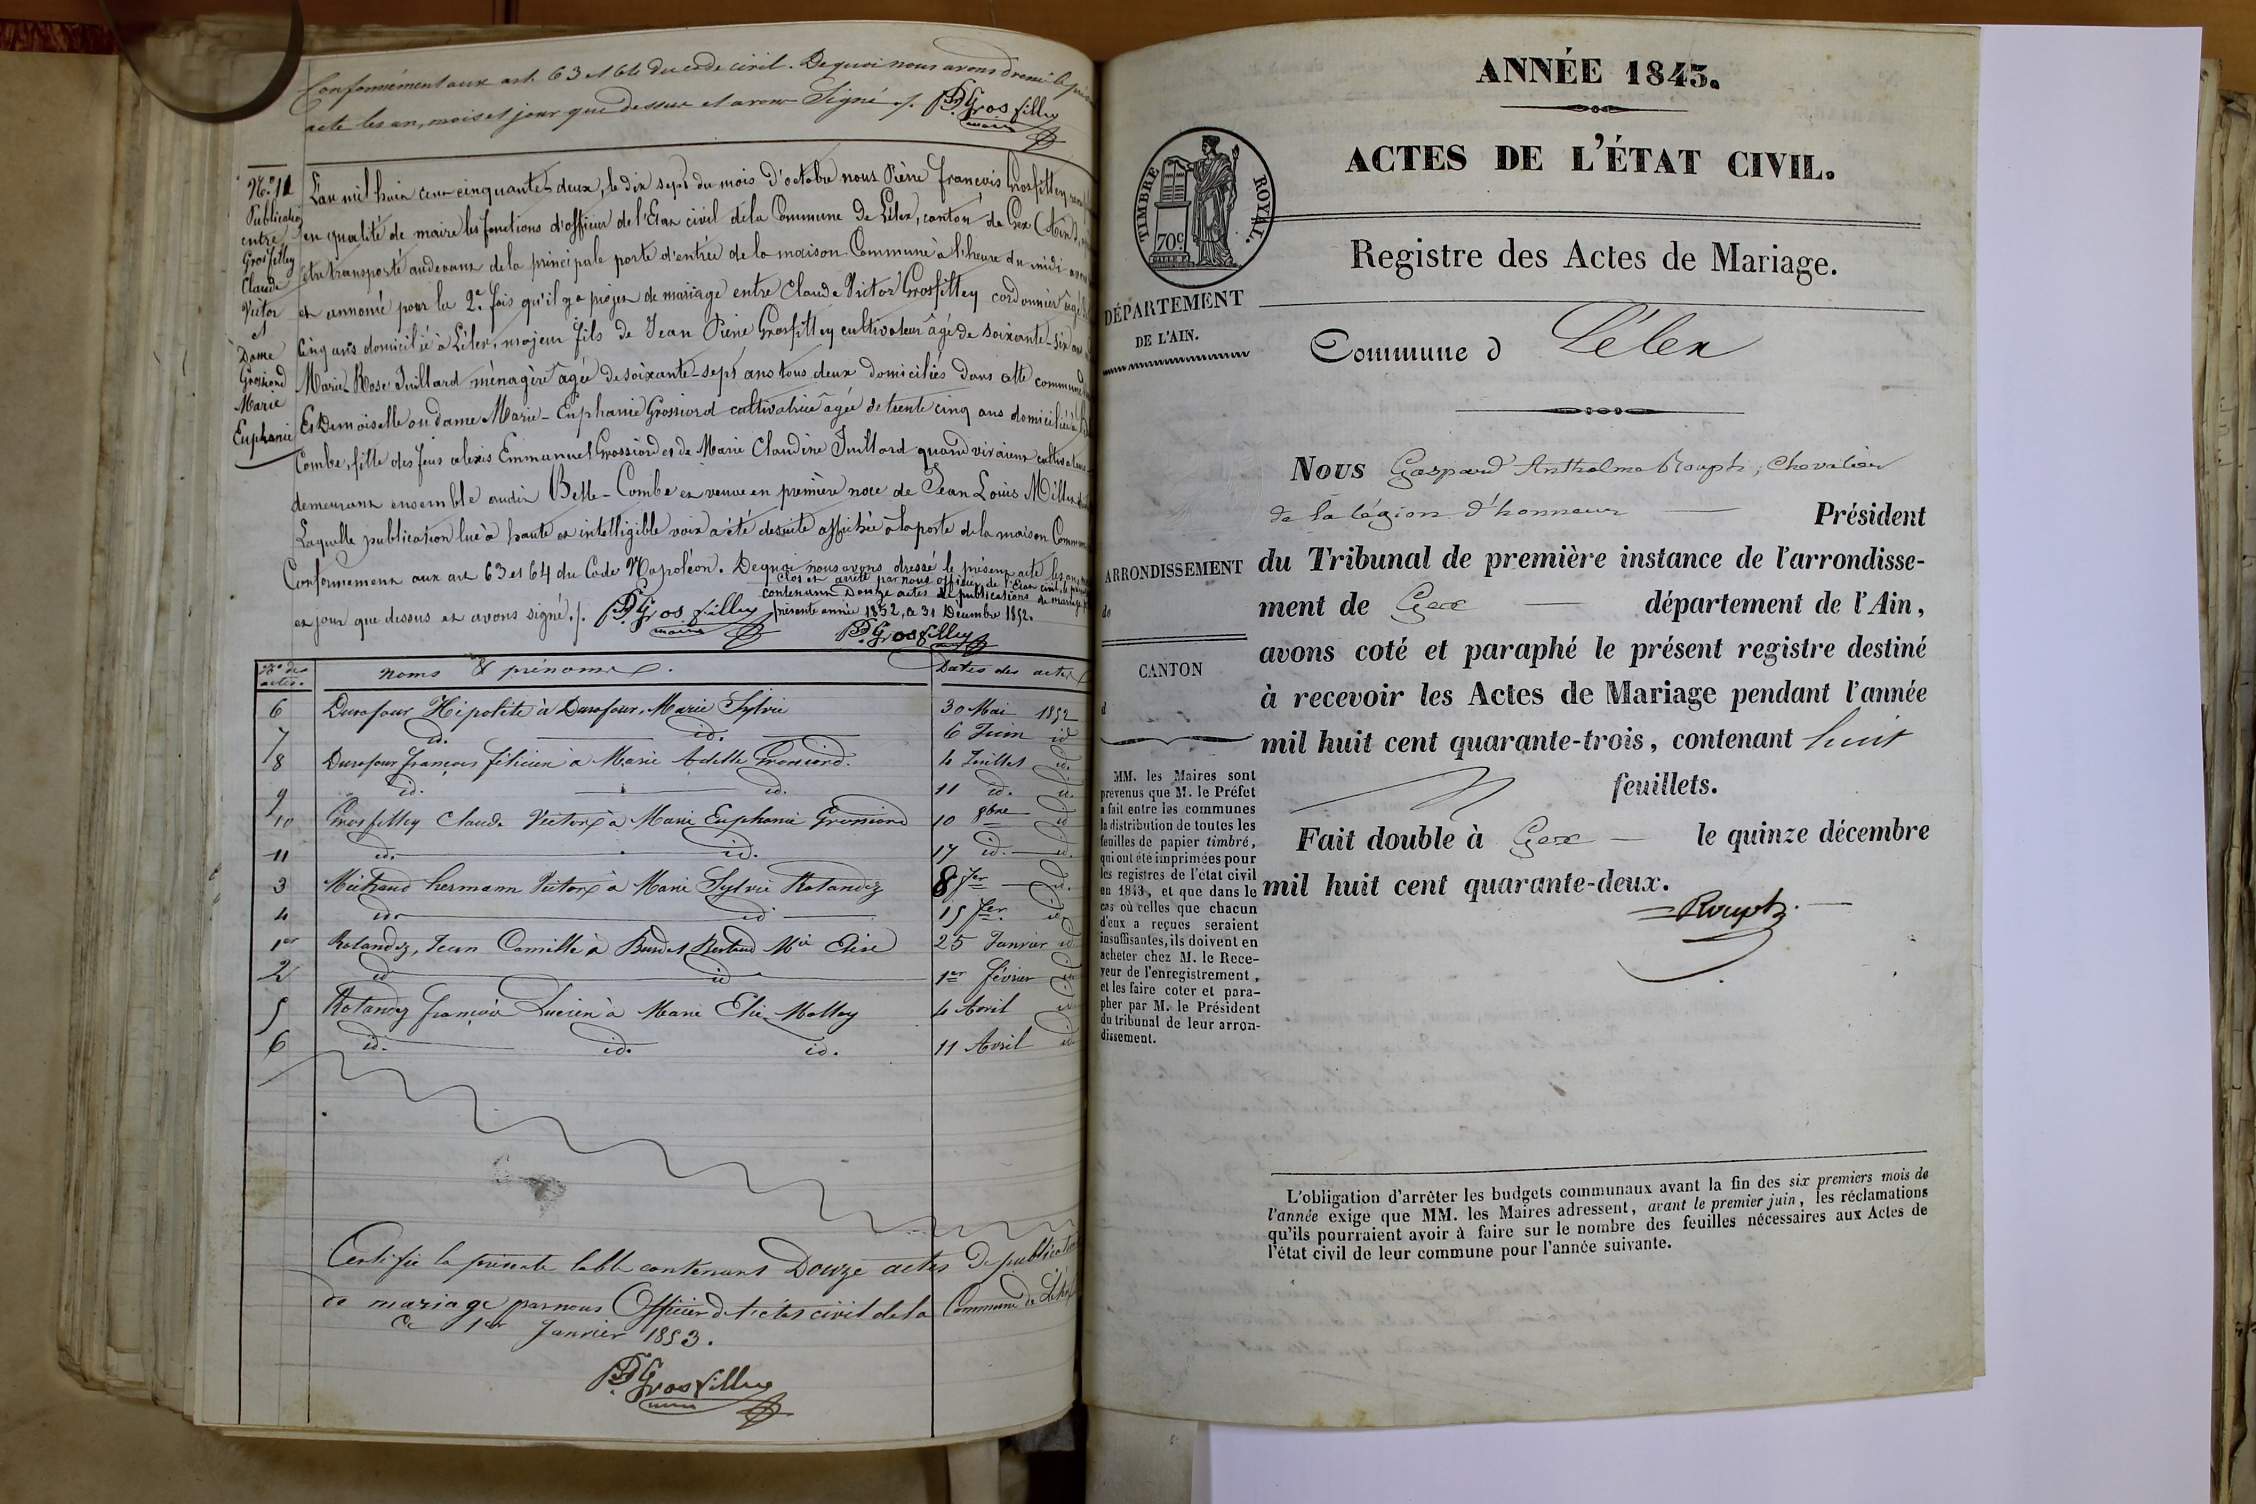 Conformément aux art. 63 et 64 du code civil. De quoi nous avons dressé le
acte les an, mois et jour que dessus et avons signé ./. PF Grosfilley
maire
N° 11
Publication
entre
Grosfilley
Claude
Victor
et
Dame
Grossiord
Marie
Euphanie
L'an mil huit cent cinquante deux, le dix sept du mois d'octobre nous Pierre François Grosfilley
en qualité de maire les fonctions d'officier de l'Etat civil de la Commune de Lélex, canton de Gex (Ain),
être transporté audevant de la principale porte d'entrée de la maison Commune à l'heure du midi
et annoncé pour la 2e fois qu'il y a projet de mariage entre Claude Victor Grosfilley cordonnier âgé
cinq ans domicilié à Lélex, majeur fils de Jean Pierre Grosfilley cultivateur âgé de soixante-six ans
Marie-Rose Juillard ménagère âgée de soixante-sept ans tous deux domiciliés dans cette commune
Et Demoiselle ou dame Marie-Euphanie Grossiord cultivatrice âgée de trente cinq ans domiciliée à
Combe, fille des feus alexis Emmanuel Grossiord et de Marie Claudine Juillard quand vivaient cultivateurs
demeurant ensemble audit Belle-Combe et veuve en première noce de Jean Louis
Laquelle publication lue à haute et intelligible voix a été desuite affichée à la porte de la maison Commune
Conformément aux art 63 et 64 du Code Napoléon. De quoi nous avons dressé le présent acte les an
et jour que dessus et avons signé ./. PF Grosfilley
maire
Clos et arrêté par nous officier de l'Etat civil, le
contenant Douze actes de publications de mariage
présente année 1852, ce 31 Décembre 1852.
PF Grosfilley
N° des actes. noms & prénoms. Dates des actes
6 Durafour Hipolite à Durafour, Marie Sylvie 30 Mai 1852
7 id. id. 6 Juin id
8 Durafour françois félicien à Marie Adelle Grossiord. 4 Juillet id.
9 id. id. 11 id. id.
10 Grosfilley Claude Victor à Marie Euphanie Grossiord 10 8bre id
11 id. id. 17 id. id.
3 Michaud hermann Victor à Marie Sylvie Rolandez 8 fer id.
4 id. id 15 fer. id
1er Rolandez, Jean Camille à Mie Elise 25 Janvier id
2 id id 1er février id
5 Rolandez françois Lucien à Marie Elie 4 Avril id
6 id. id. id. 11 Avril id
Certifié la présente table contenant Douze actes De publications
de mariage par nous Officier de civil de la Commune de Lélex
Ce 1er Janvier 1853.
PF Grosfilley
maire
ANNÉE 1843.
ACTES DE L'ÉTAT CIVIL.
TIMBRE ROYAL.
70c
Registre des Actes de Mariage.
DÉPARTEMENT
DE L'AIN.
Commune d Lélex
Nous Gaspard Anthelme Rouph, Chevalier
de la légion d'honneur Président
ARRONDISSEMENT
de
du Tribunal de première instance de l'arrondisse-
ment de Gex département de l'Ain,
avons coté et paraphé le présent registre destiné
à recevoir les Actes de Mariage pendant l'année
mil huit cent quarante-trois, contenant huit
feuillets.
Fait double à Gex le quinze décembre
mil huit cent quarante-deux.
CANTON
d
MM. les Maires sont
prévenus que M. le Préfet
a fait entre les communes
la distribution de toutes les
feuilles de papier timbré,
qui ont été imprimées pour
les registres de l'état civil
en 1843, et que dans le
cas où celles que chacun
d'eux a reçues seraient
insuffisantes, ils doivent en
acheter chez M. le Rece-
veur de l'enregistrement,
et les faire coter et para-
pher par M. le Président
du tribunal de leur arron-
dissement.
L'obligation d'arrêter les budgets communaux avant la fin des six premiers mois de
l'année exige que MM. les Maires adressent, avant le premier juin, les réclamations
qu'ils pourraient avoir à faire sur le nombre des feuilles nécessaires aux Actes de
l'état civil de leur commune pour l'année suivante.